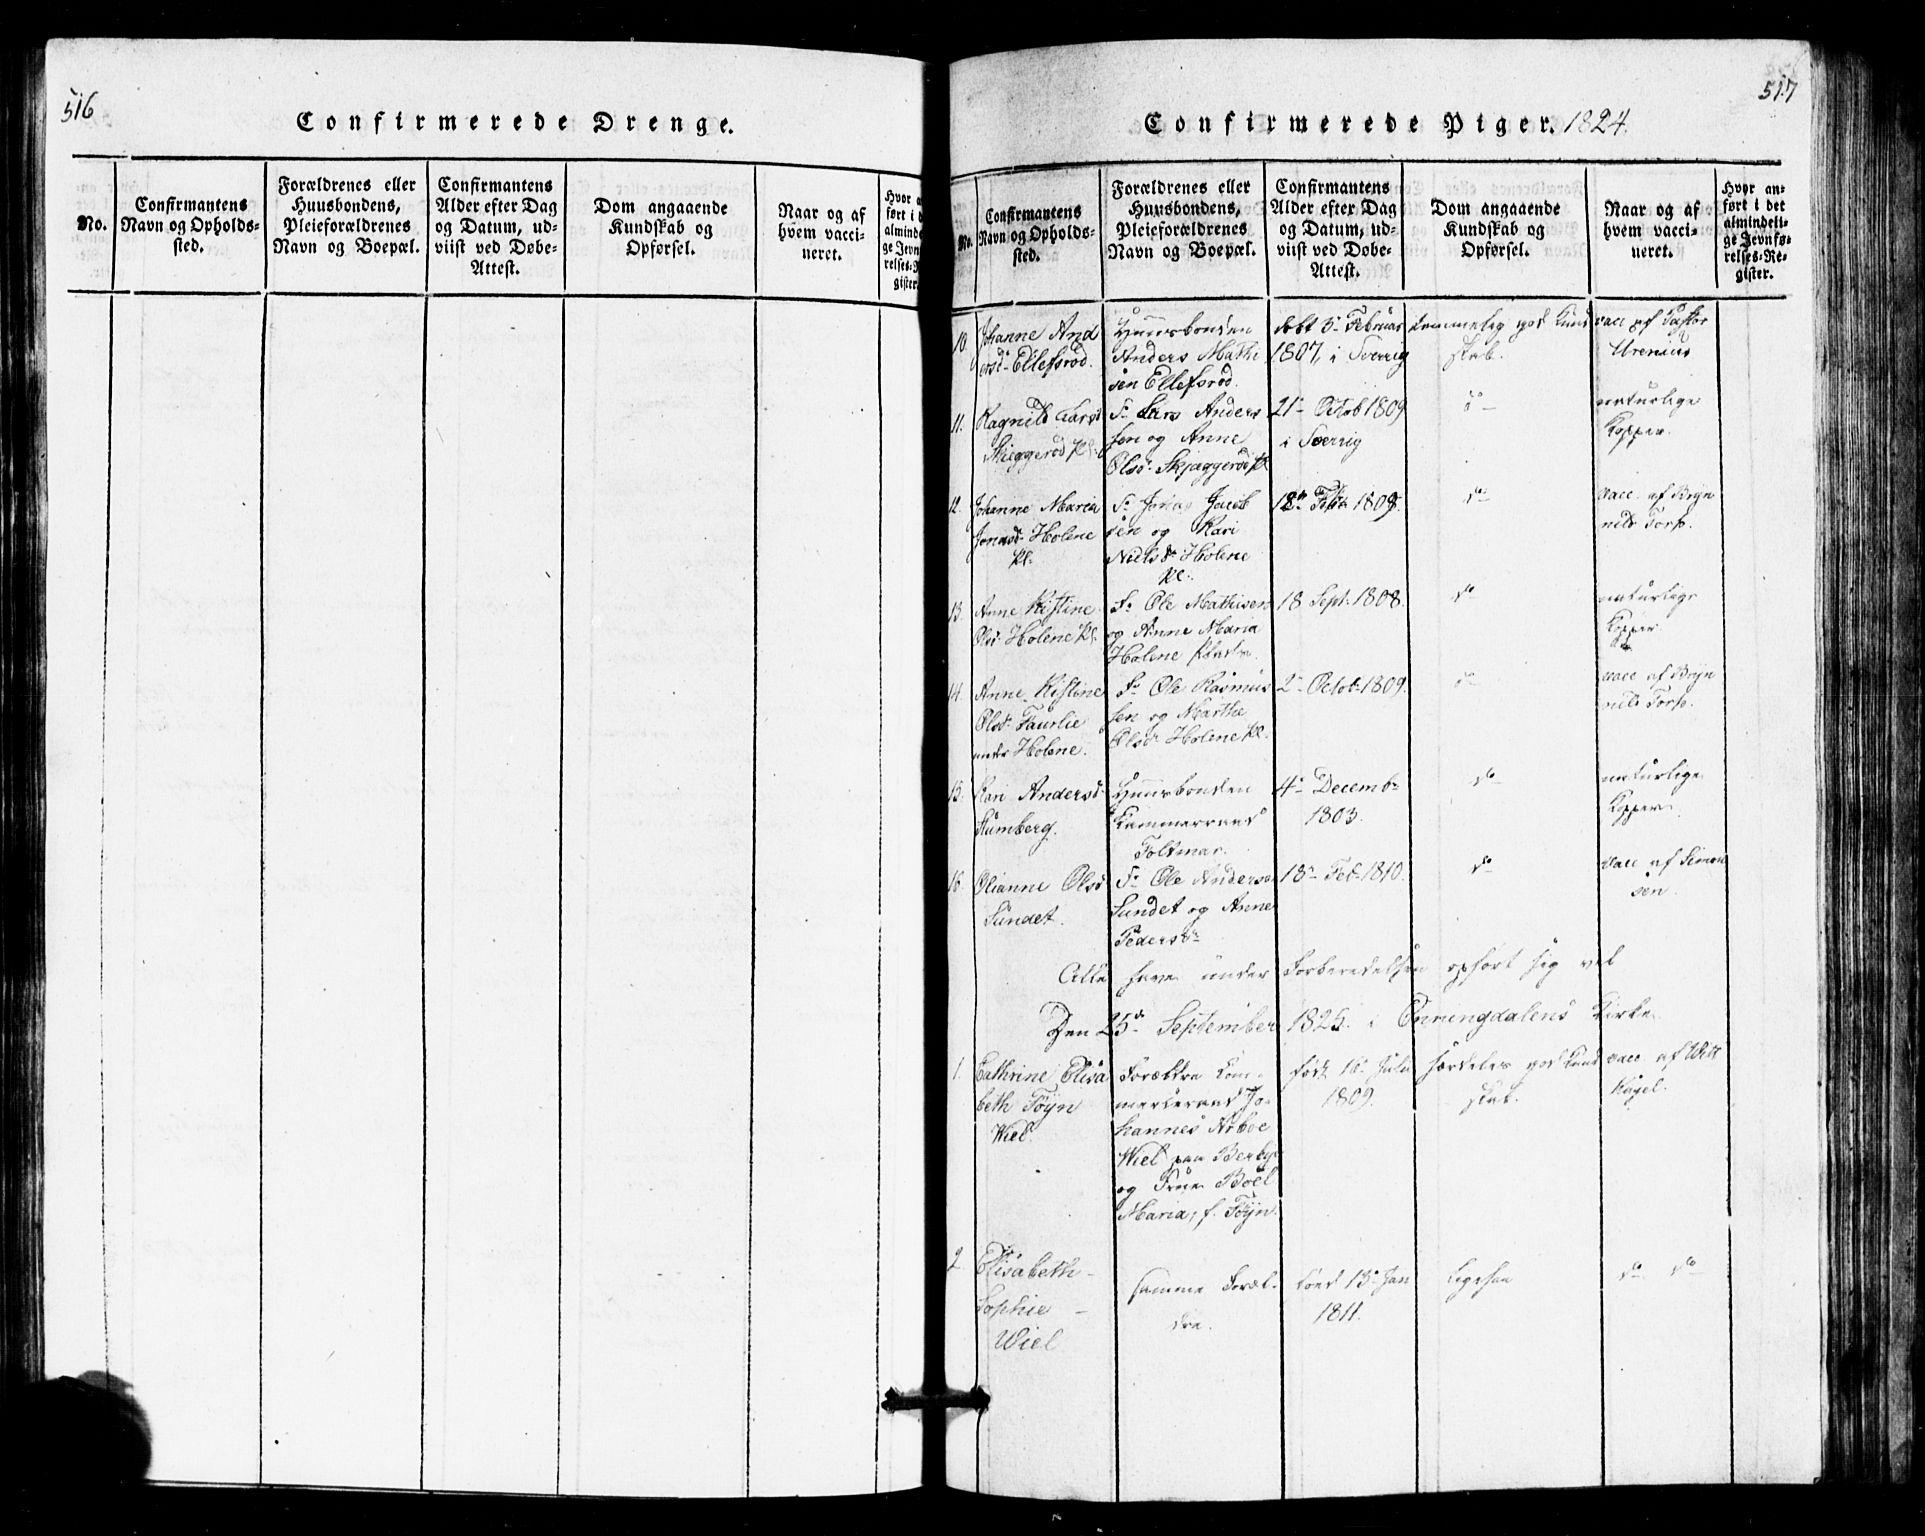 516
Confirmerede Drenge.
No.
Confirmantens
Navn og Opholds-
sted.
Forældrenes eller
Huusbondens,
Pleieforældrenes
Navn og Boepæl.
Confirmantens
Alder efter Dag
og Datum, ud-
viist ved Døbe-
Attest.
Dom angaaende
Kundskab og
Opførsel.
Naar og af
hvem vacci-
neret.
Hvor a
ført i d
alminde
ge Jevn
relses-R
gister.
517
Confirmerede Piger. 1824.
No.
Confirmantens
Navn og Opholds-
sted.
Forældrenes eller
Huusbondens,
Pleieforældrenes
Navn og Boepæl.
Confirmantens
Alder efter Dag
og Datum, ud-
viist ved Døbe-
Attest.
Dom angaaende
Kundskab og
Opførsel.
Naar og af
hvem vacci-
neret.
Hvor an-
ført i det
almindeli-
ge Jevnfø-
relses-Re-
gister.
10.
Johanne And
ersd. Ellefsrød.
Huusbonden
Anders Mathi
sen Ellefsrød.
døbt 3. Februar
1807, i Sverrig
temmelig god Kund
skab.
vacc. af Pastor
Urenius
11.
Ragnild Larsd
Skieggerød Pl.
F. Lars Anders
sen og Anne
Olsd. Skjaggerød Pl.
21. Octob 1809
i Sverrig
do
naturlige
Kopper.
12.
Johanne Maria
Jonasd. Holene
Pl.
F. Jonas Jacob
sen og Kari
Nielsdr. Holene
Pl.
18. 1809.
do
vacc. af Bryn
nild Torp.
13.
Anne Kistine
Olsd. Holene Pl.
F. Ole Mathisen
og Anne Maria
Holene Pladts.
18 Sept. 1808.
do
naturlige
Kopper.
14.
Anne Kistine
Olsd. Faurlie
under Holene.
F. Ole Rasmus
sen og Marthe
Olsd. Holene Pl.
2. Octob. 1809.
do
vacc af Bryn
nild Torp.
15.
Kari Andersd.
Stumberg.
Huusbonden
Kammerraad
Foltmar.
4. Decemb.
1803.
do
naturlige
Kopper.
16.
Olianne Olsd
Sundet.
F. Ole Andersen
Sundet og Anne
Pedersdr.
18. Feb. 1810.
do
vacc af Simon
sen.
Alle have under Forberedelsen opført sig vel
Den 25d. September 1825. i Enningdalens Kirke.
1.
Cathrine Elisa
beth Tøyn
Wiel.
Forældre Com-
merceraad Jo-
hannes Arboe
Wiel paa Berby
og Frue Boel
Maria, f. Tøyn.
født 16. Julii
1809.
særdeles god Kund
skab.
vacc. af Witt
Kugel.
2
Elisabeth
Sophie
Wiel
samme Foræl-
dre.
født 13. Jan
1811.
ligesaa
do do